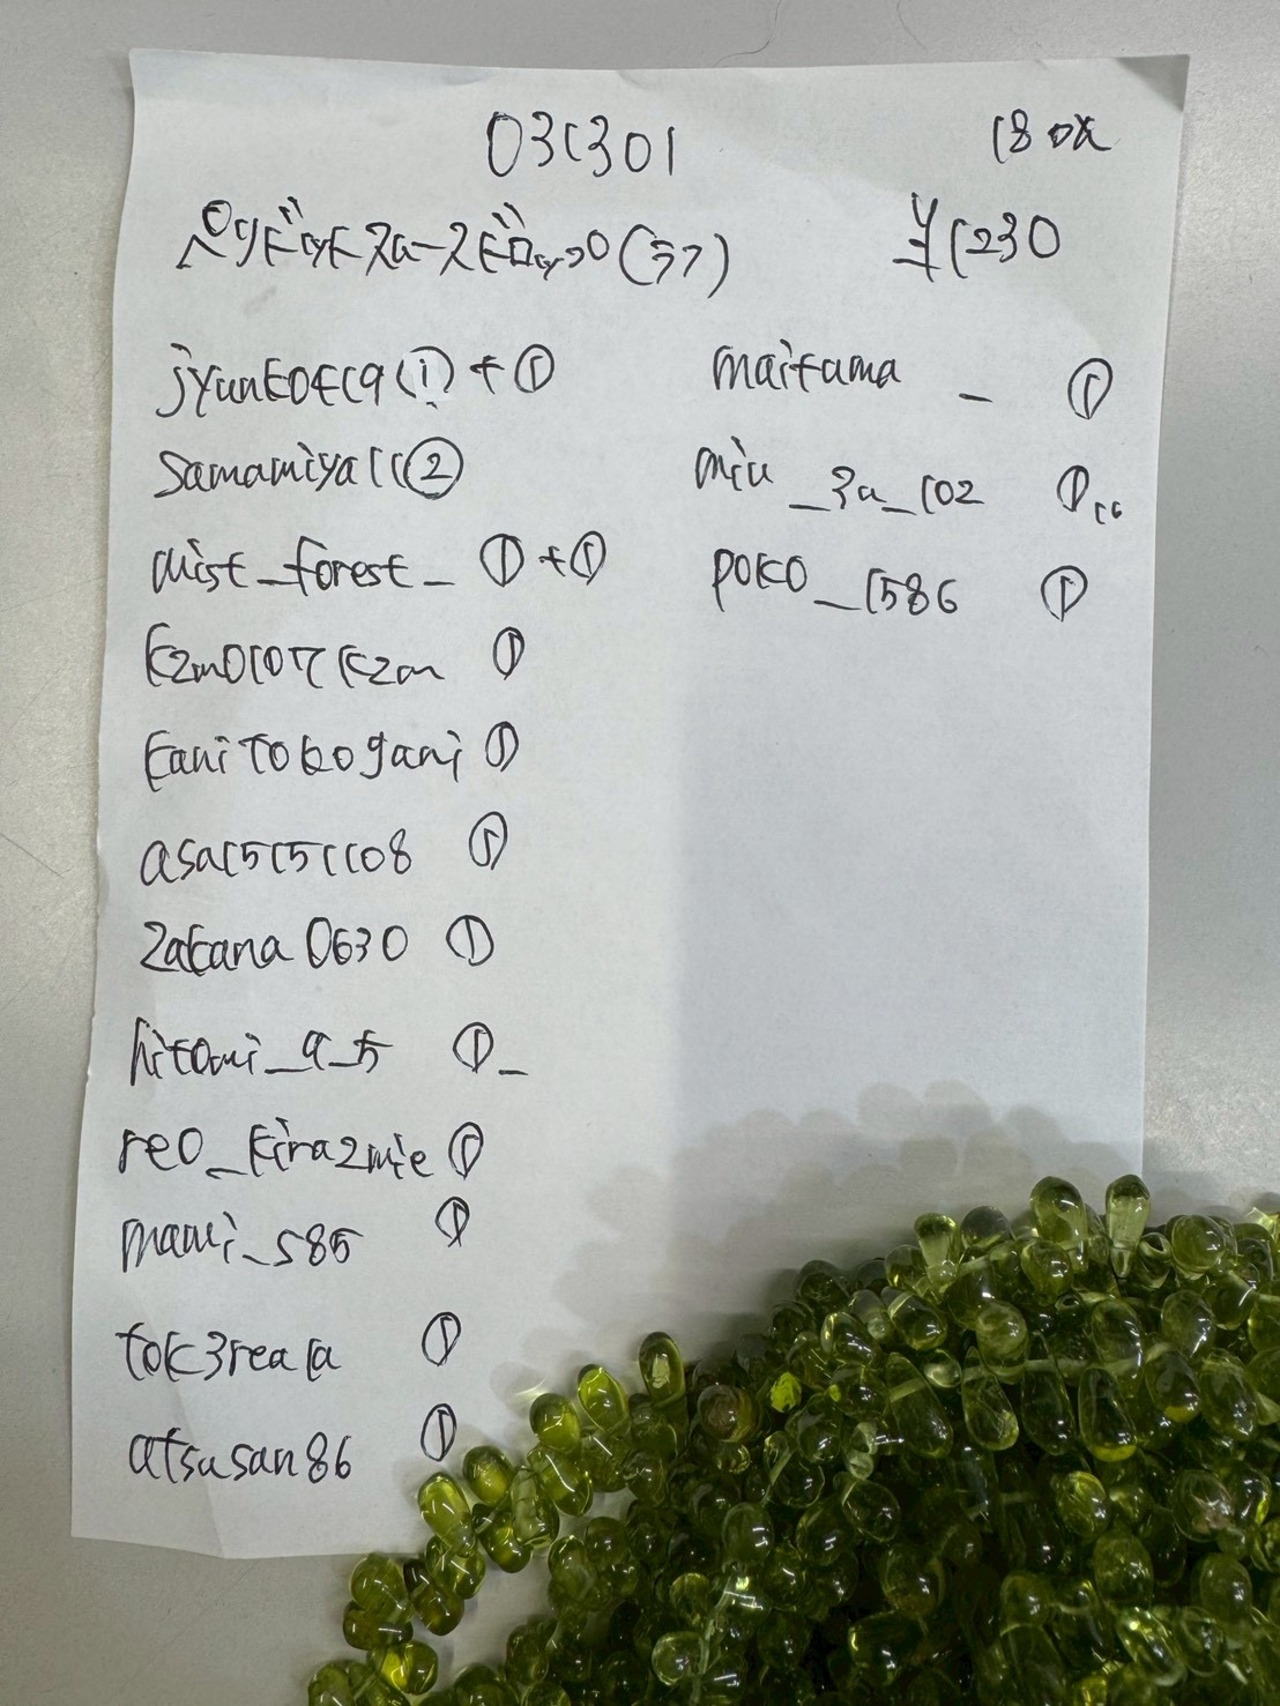 031301
18 ox
ペリドットスムースドロップ(ラフ)
¥1230
jyunko419 ① + ①
samamiya11 ②
mist_forest_ ① + ①
kzm0107kzm ①
kanitobogani ①
asa15151108 ①
zakana0630 ①
hitomi_9_5 ①_
reo_kirazmie ①
mami_585 ①
tok3reala ①
atsusan86 ①
maitama_ ①
miu_3a_102 ①
poko_1586 ①